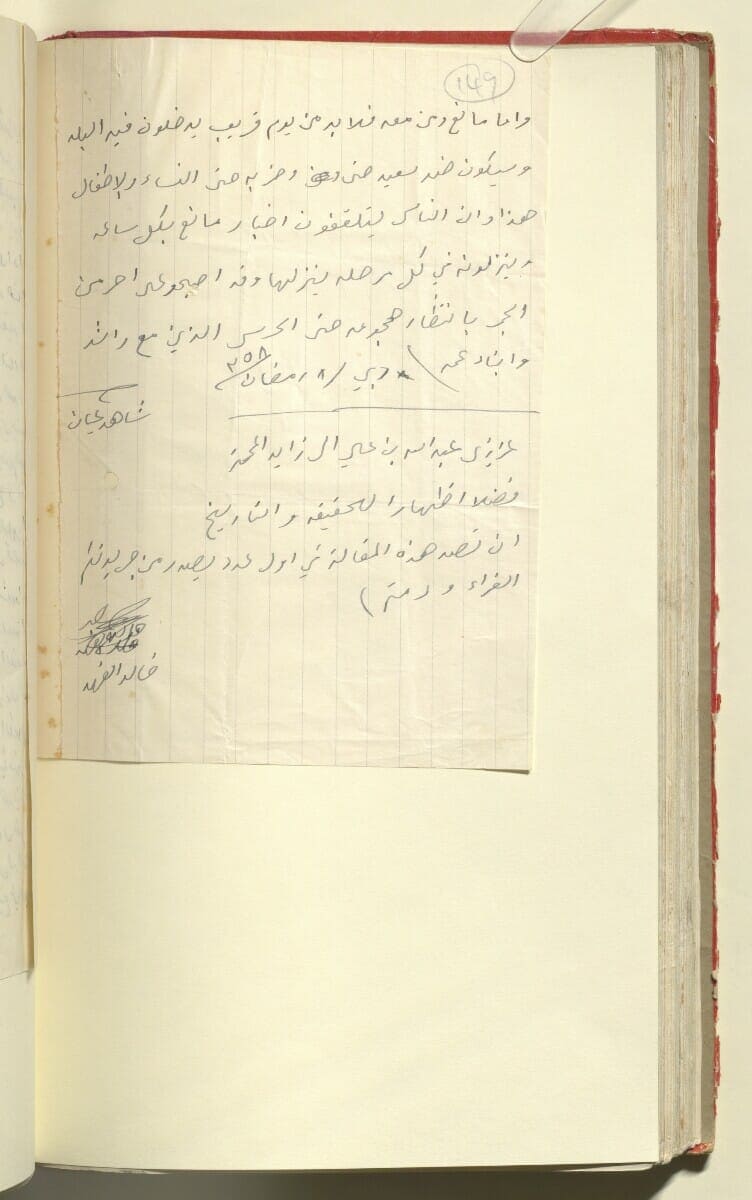 149
واما مانع ومن معه فلابد من يوم قريب يدخلون فيه البلد
وسيكون ضد سعيد حتى وحزبه حتى النساء والاطفال
هذا وان الناس ليتلقفون اخبار مانع بكل ساعه
وينزلونه في كل مرحله ينزلها وقد اصبحو على احر من
الجمر بانتظار هجومه حتى الحرس الذين مع راشد
وابناء عمه ) دبي / ٨ رمضان ٣٥٨
شاهد عيان
عزيزي عبدالله بن علي ال زايد المحترم
فضلا اظهارا للحقيقه والتاريخ
ان تصدر هذه المقالة في اول عدد يصدر من جريدتكم
الغراء ودمتم )
خالد الفهد